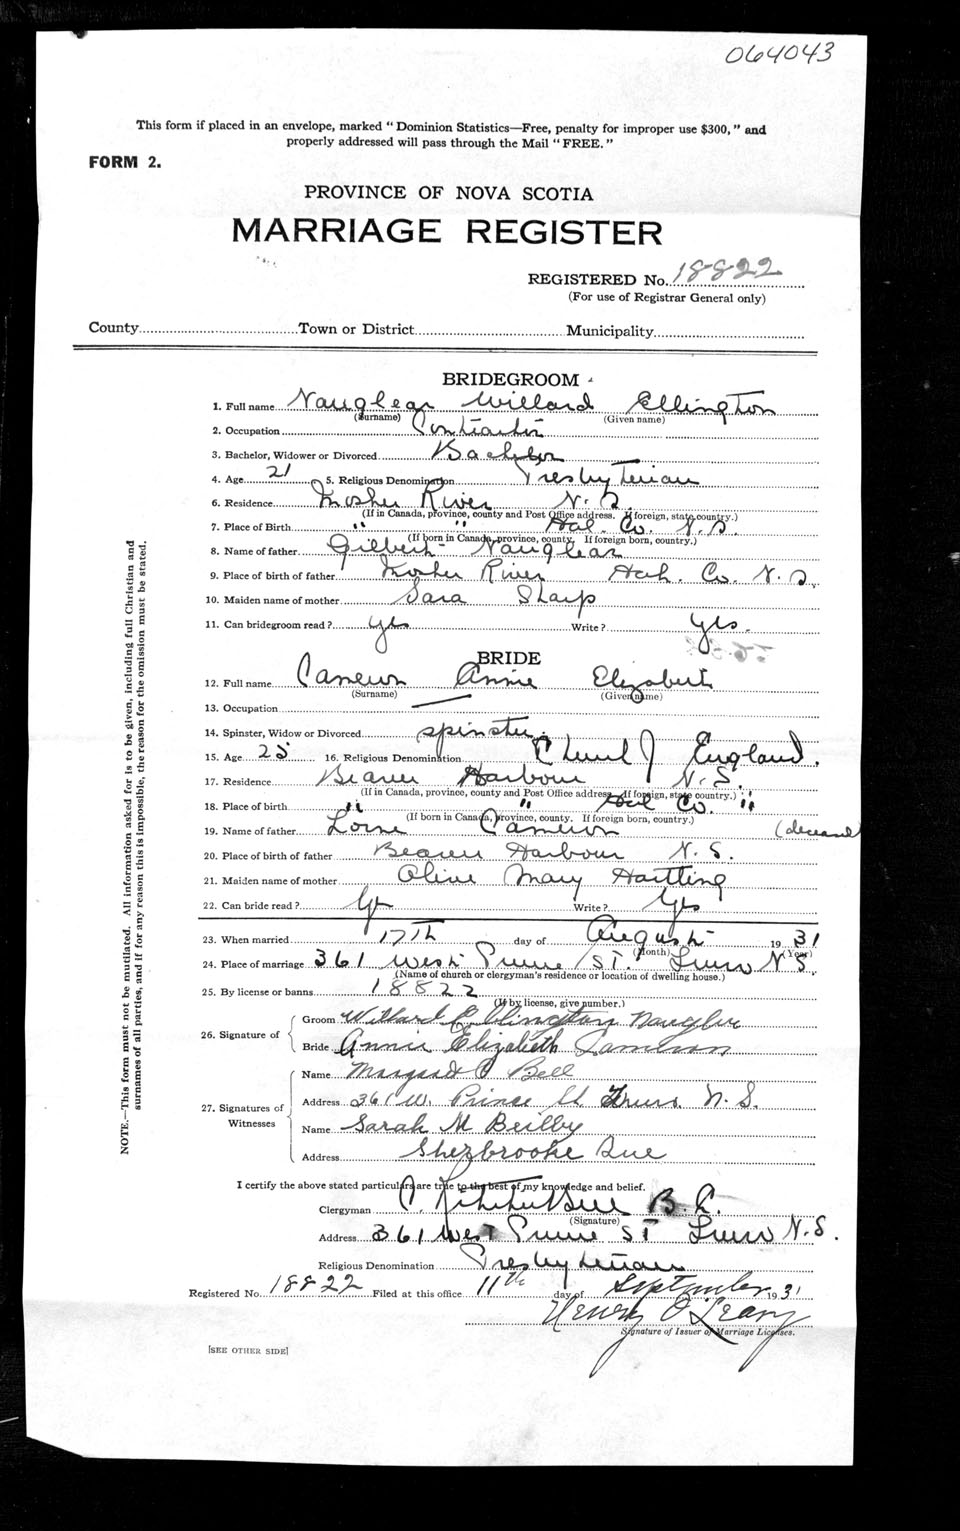 064043
This form if placed in an envelope, marked "Dominion Statistics—Free, penalty for improper use $300," and
properly addressed will pass through the Mail "FREE."
FORM 2.
PROVINCE OF NOVA SCOTIA
MARRIAGE REGISTER
REGISTERED No. 18822
(For use of Registrar General only)
County Town or District Municipality
BRIDEGROOM
1. Full name Nauglear Willard Ellington
(Surname) (Given name)
2. Occupation Contractor
3. Bachelor, Widower or Divorced Bachelor
4. Age 21 5. Religious Denomination Presbyterian
6. Residence Mosher River N.S
(If in Canada, province, county and Post Office address. If foreign, state country.)
7. Place of Birth " " Hal. Co. N.S.
(If born in Canada, province, county. If foreign born, country.)
8. Name of father Gilbert Nauglear
9. Place of birth of father Mosher River Hah. Co. N.S.
10. Maiden name of mother Sara Sharp
11. Can bridegroom read? yes Write? yes.
BRIDE
12. Full name Cameron Annie Elizabeth
(Surname) (Given name)
13. Occupation —
14. Spinster, Widow or Divorced spinster.
15. Age 25 16. Religious Denomination Church of England.
17. Residence Beaver Harbour N.S.
(If in Canada, province, county and Post Office address. If foreign, state country.)
18. Place of birth " " Hal Co. "
(If born in Canada, province, county. If foreign born, country.)
19. Name of father Lorne Cameron (deceased)
20. Place of birth of father Beaver Harbour N.S.
21. Maiden name of mother Olive Mary Hartling
22. Can bride read? Yes Write? Yes
23. When married 17th day of August 1931
(Month) (Year)
24. Place of marriage 361 West Prince St. Truro N.S.
(Name of church or clergyman's residence or location of dwelling house.)
25. By license or banns 18822
(If by license, give number.)
26. Signature of
Groom Willard Ellington Naugler
Bride Annie Elizabeth Cameron
27. Signatures of Witnesses
Name Margaret Bell
Address 361 W. Prince St Truro N.S.
Name Sarah M Beilby
Address Sherbrooke Que
I certify the above stated particulars are true to the best of my knowledge and belief.
Clergyman B.A.
(Signature)
Address 361 West Prince St Truro N.S.
Religious Denomination Presbyterian
Registered No. 18822 Filed at this office 11th day of September 1931
Henry O'Leary
Signature of Issuer of Marriage Licenses.
[SEE OTHER SIDE]
NOTE.—This form must not be mutilated. All information asked for is to be given, including full Christian and
surnames of all parties, and if for any reason this is impossible, the reason for the omission must be stated.